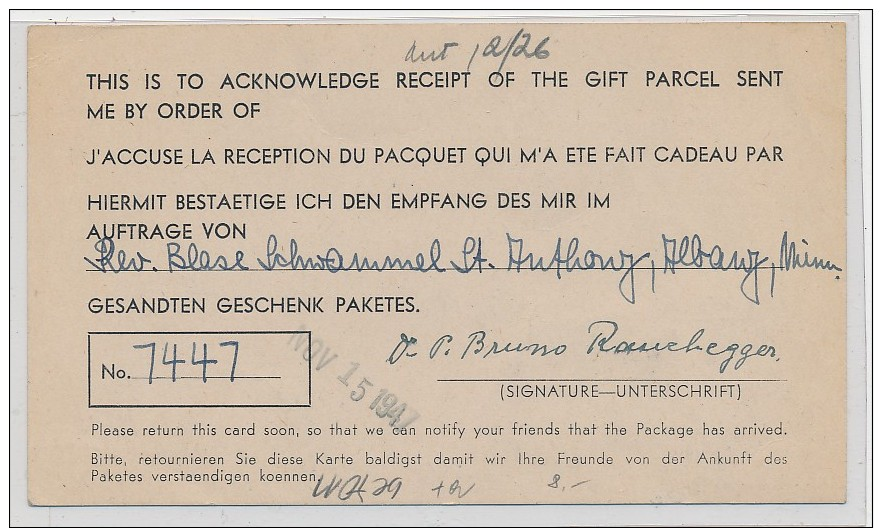 Aut 12/26
THIS IS TO ACKNOWLEDGE RECEIPT OF THE GIFT PARCEL SENT
ME BY ORDER OF
J'ACCUSE LA RECEPTION DU PACQUET QUI M'A ETE FAIT CADEAU PAR
HIERMIT BESTAETIGE ICH DEN EMPFANG DES MIR IM
AUFTRAGE VON
Rev. Blase Schwammel St. Anthony, Albany, Minn.
GESANDTEN GESCHENK PAKETES.
No. 7447
NOV 15 1947
Dr P. Bruno
(SIGNATURE—UNTERSCHRIFT)
Please return this card soon, so that we can notify your friends that the Package has arrived.
Bitte, retournieren Sie diese Karte baldigst damit wir Ihre Freunde von der Ankunft des
Paketes verstaendigen koennen.
8,-